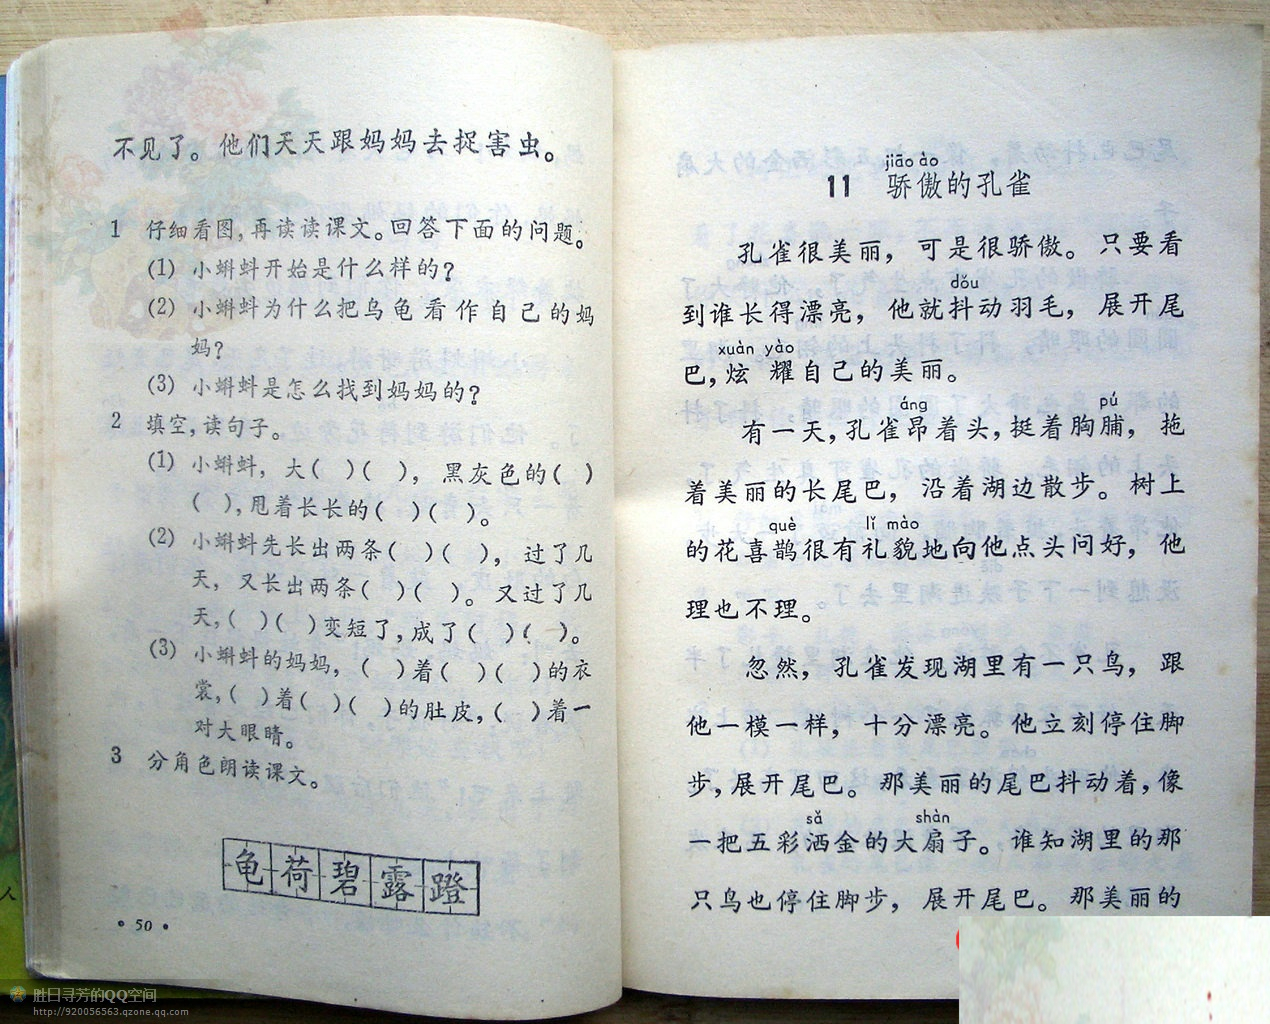 不见了。他们天天跟妈妈去捉害虫。
1 仔细看图,再读读课文。回答下面的问题。
(1) 小蝌蚪开始是什么样的?
(2) 小蝌蚪为什么把乌龟看作自己的妈
妈?
(3) 小蝌蚪是怎么找到妈妈的?
2 填空,读句子。
(1) 小蝌蚪,大( )( ),黑灰色的( )
( ),甩着长长的( )( )。
(2) 小蝌蚪先长出两条( )( ),过了几
天,又长出两条( )( )。又过了几
天,( )( )变短了,成了( )( )。
(3) 小蝌蚪的妈妈,( )着( )( )的衣
裳,( )着( )( )的肚皮,( )着一
对大眼睛。
3 分角色朗读课文。
龟荷碧露蹬
• 50 •
jiāo ào
11 骄傲的孔雀
孔雀很美丽,可是很骄傲。只要看
dǒu
到谁长得漂亮,他就抖动羽毛,展开尾
xuàn yào
巴,炫耀自己的美丽。
áng pú
有一天,孔雀昂着头,挺着胸脯,拖
着美丽的长尾巴,沿着湖边散步。树上
què lǐ mào
的花喜鹊很有礼貌地向他点头问好,他
理也不理。
忽然,孔雀发现湖里有一只鸟,跟
他一模一样,十分漂亮。他立刻停住脚
步,展开尾巴。那美丽的尾巴抖动着,像
sǎ shàn
一把五彩洒金的大扇子。谁知湖里的那
只鸟也停住脚步,展开尾巴。那美丽的
人
胜日寻芳的QQ空间
http://920056563.qzone.qq.com